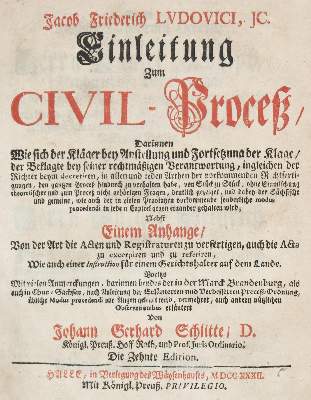 Jacob Friederich LVDOVICI, JC.
Einleitung
Zum
CIVIL-Proceß/
Darinnen
Wie sich der Kläger bey Anstellung und Fortsetzung der Klage/
der Beklagte bey seiner rechtmäßigen Verantwortung, ingleichen der
Richter beym decretiren, in allen und jeden Arthen der vorkommenden Rechtferti-
gungen, den gantzen Proceß hindurch zu verhalten habe, von Stück zu Stück, ohne Einmischung
theoretischer und zum Proceß nicht gehörigen Fragen, deutlich gezeiget, und dabey der Sächsische
und gemeine, wie auch der in vielen Provintzien vorkommende sonderliche modus
procedendi in jedem Capitel gegen einander gehalten wird,
Nebst
Einem Anhange/
Von der Art die Acten und Registraturen zu verfertigen, auch die Acta
zu excerpiren und zu referiren,
Wie auch einer Instruction für einem Gerichtshalter auf dem Lande.
Mit vielen Anmerckungen, darinnen sonders der in der Marck Brandenburg, als
auch in Chur-Sachsen, nach Anleitung der Erläuterten und Verbesserten Proceß-Ordnung,
übliche Modus procedendi vor Augen geleget wird, vermehret, auch andern nützlichen
Observationibus erläutert
Von
Johann Gerhard Schlitte/ D.
Königl. Preuß. Hoff-Rath, und Prof. Juris Ordinario.
Die Zehnte Edition.
HALLE, in Verlegung des Wäysenhauses, MDCCXXXII.
Mit Königl. Preuß. PRIVILEGIO.